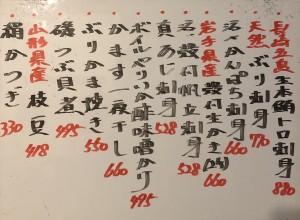 長崎五島 生本鮪トロ刺身 880
天然ぶり刺身 770
活〆かんぱち刺身 660
岩手県産 殻付生かき(2ヶ) 660
活〆殻付帆立刺身 528
真あじ刺身 528
ボイルやりいか酢味噌がけ 495
かます一夜干し 660
ぶりかま焼き 550
磯つぶ貝煮 495
山形県産 枝豆 418
絹かつぎ 330